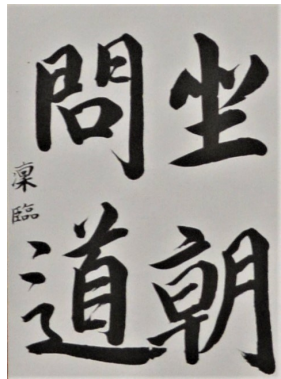 坐朝
問道
凜臨